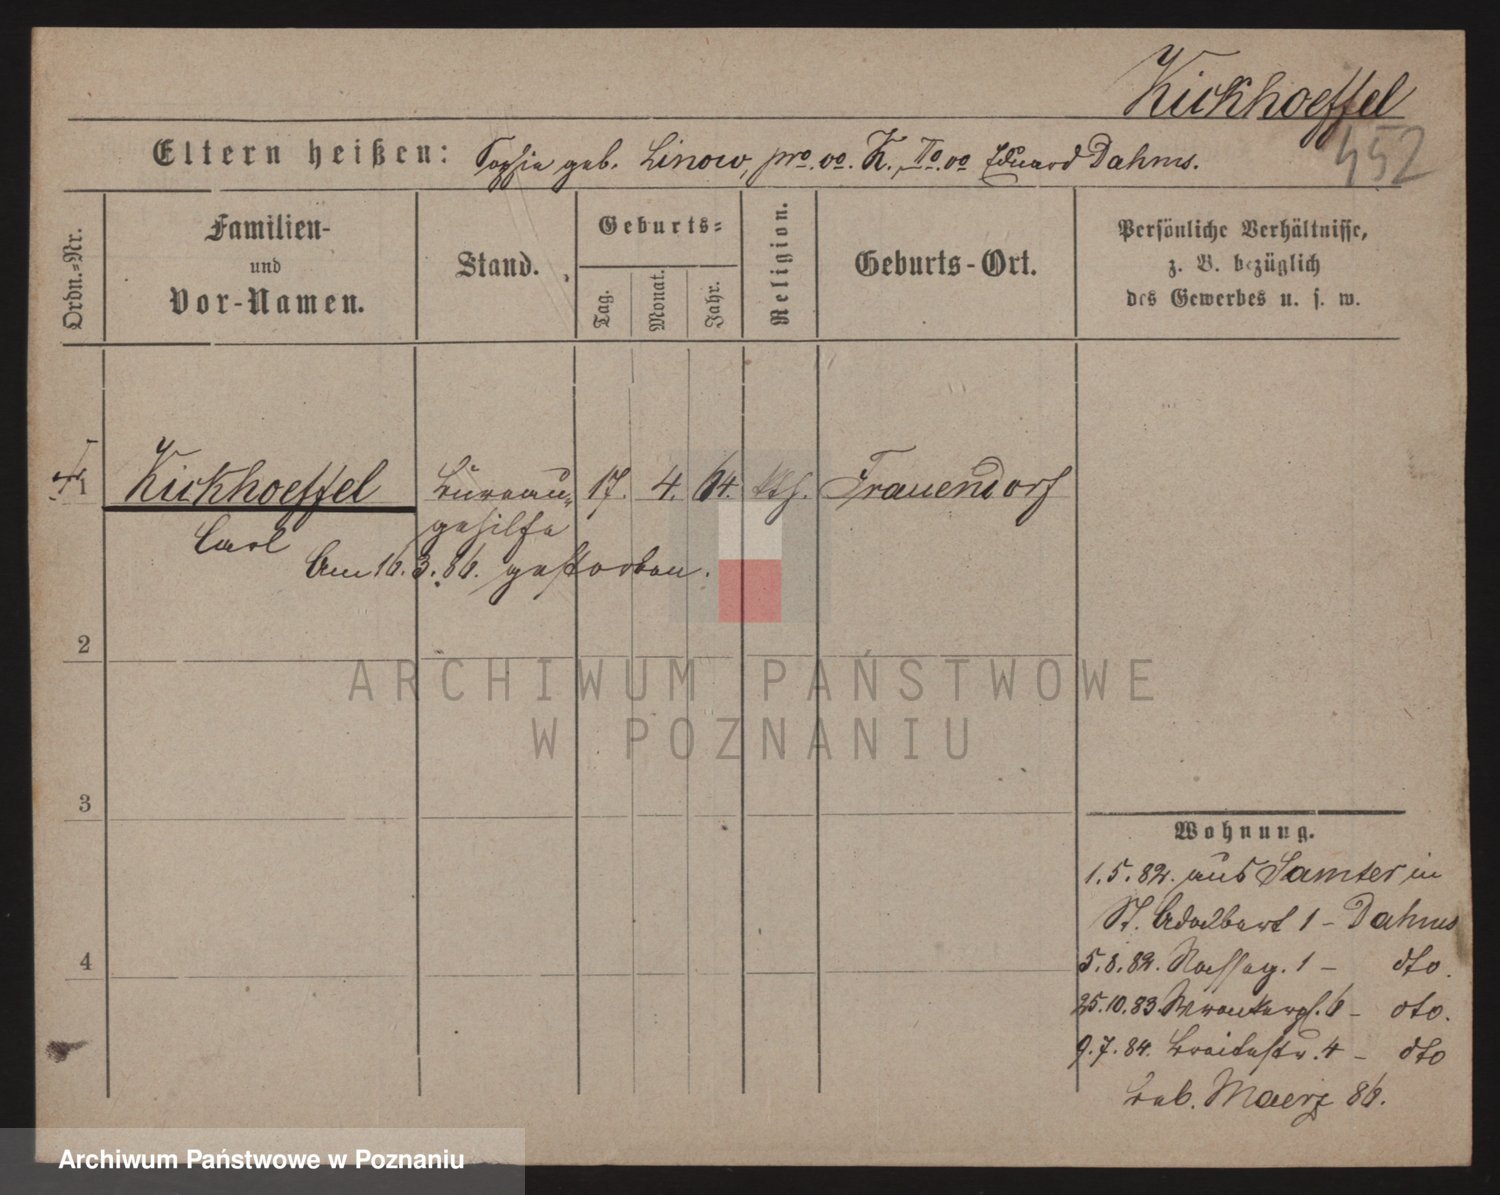 Kickhoeffel
452
Eltern heißen: Sophie geb. Linow, pro. vo. K., IIo. vo Eduard Dahms.
Ordn.-Nr.
Familien-
und
Vor-Namen.
Stand.
Geburts-
Tag.
Monat.
Jahr.
Religion.
Geburts-Ort.
Persönliche Verhältnisse,
z. B. bezüglich
des Gewerbes u. s. w.
1
Kickhoeffel
Carl
Büreau-
gehilfe
17. 4. 64. kth. Frauendorf
Am 16.3.86. gestorben.
2
3
4
Wohnung.
1.5.82. aus Samter in
St. Adalbert 1 - Dahms
5.8.82. 1 - dto.
25.10.83 Wronkergs. 6 - dto.
9.7.84. Breitestr. 4 - dto
Leb. Maerz 86.
ARCHIWUM PAŃSTWOWE
W POZNANIU
Archiwum Państwowe w Poznaniu